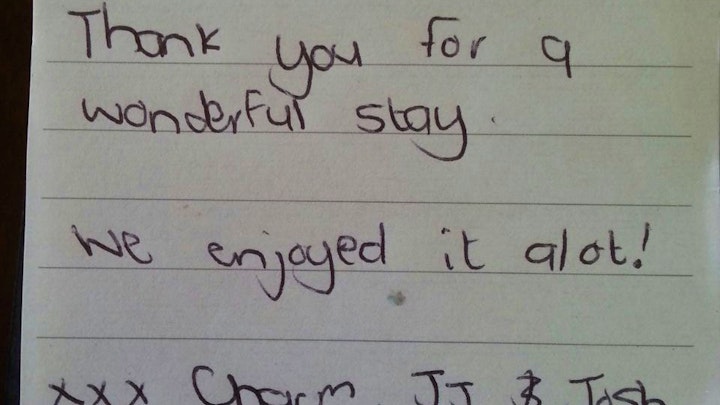 Thank you for a
wonderful stay.
We enjoyed it alot!
xxx Charm JJ & Tash